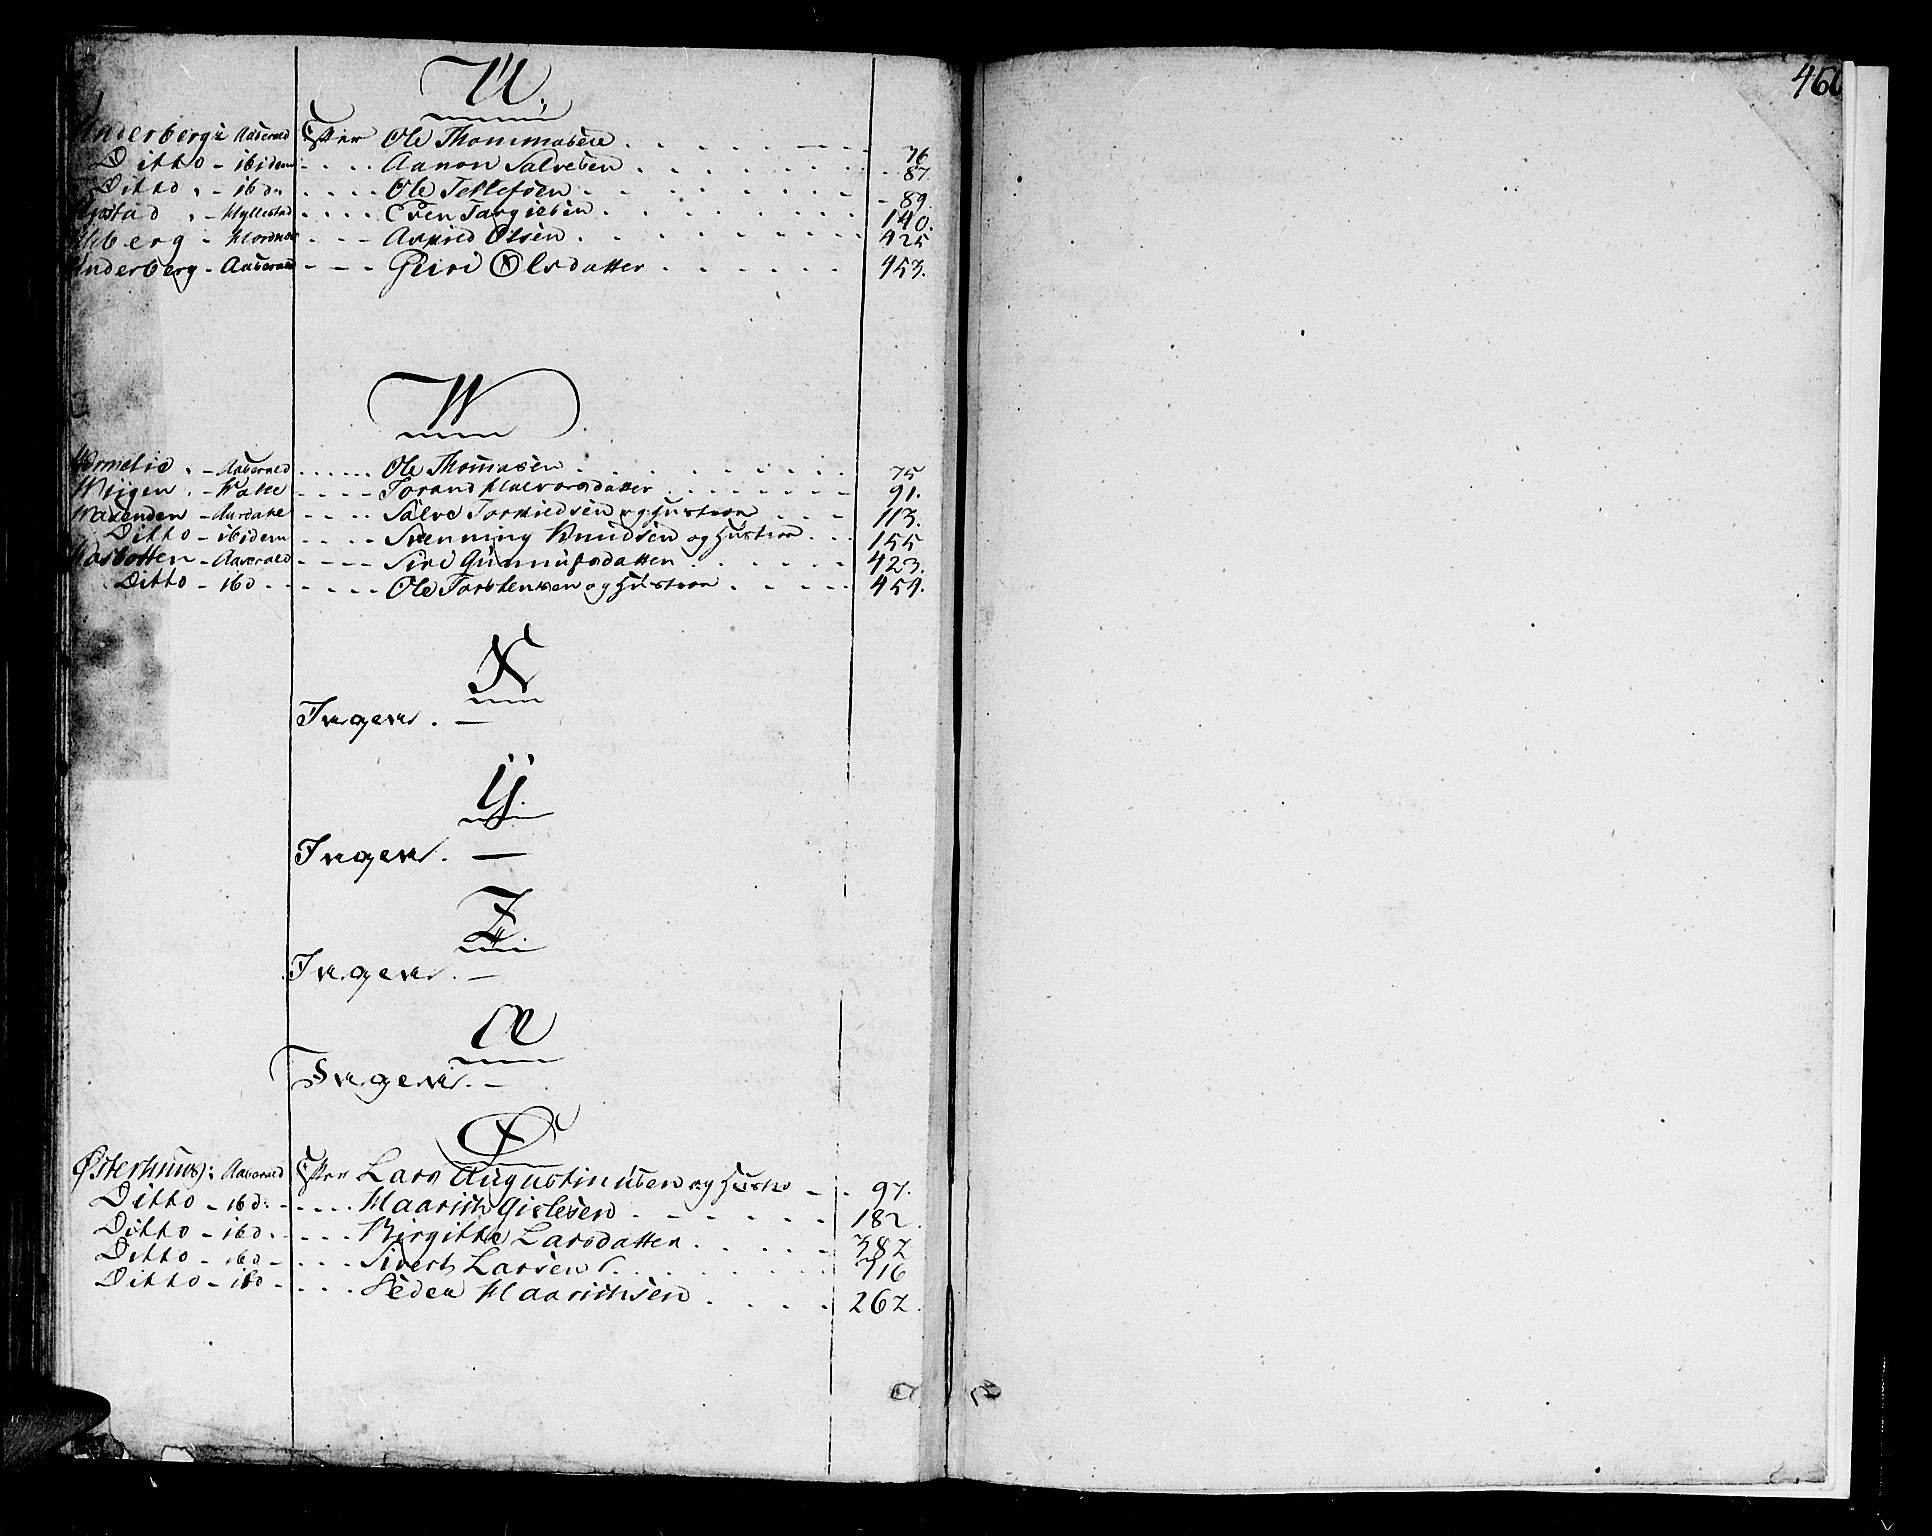 U.
Underberge Aaserald Efter Ole Thommasen 76
Ditto - ibidem Aanon Salvesen 87.
Ditto - ibd. Ole Tellefsen 89.
- Hyllestad Even Targiesen 140.
berg - Hordnæs Asmild Olsen 425
Underberg - Aaserald Giri Olsdatter 453.
W
- Aaserald Ole Thomasen 75
- Torand Halvorsdatter 91.
- Aardahl Salve Tormedsen og Hustroe 113.
Ditto - ibidem Svenning Knudsen og Hustroe 155
Wasbotten - Aaserald Siri Gunnufsdatter 423.
Ditto - ibd Ole Torstensen og Hustroe 454.
X
Ingen. —
Y.
Ingen. —
Z
Ingen. —
Æ
Ingen. —
Ø
Østerhuus: Aaserald Efter Lars Augustinusen og Hustro 97.
Ditto - ibd: Haarich Gislesen 182.
Ditto - ibd. Birgitte Larsdatter 382
Ditto - ibd - Sivert Larsen 316
Ditto - ibd - Peder Haarichsen 262.
460